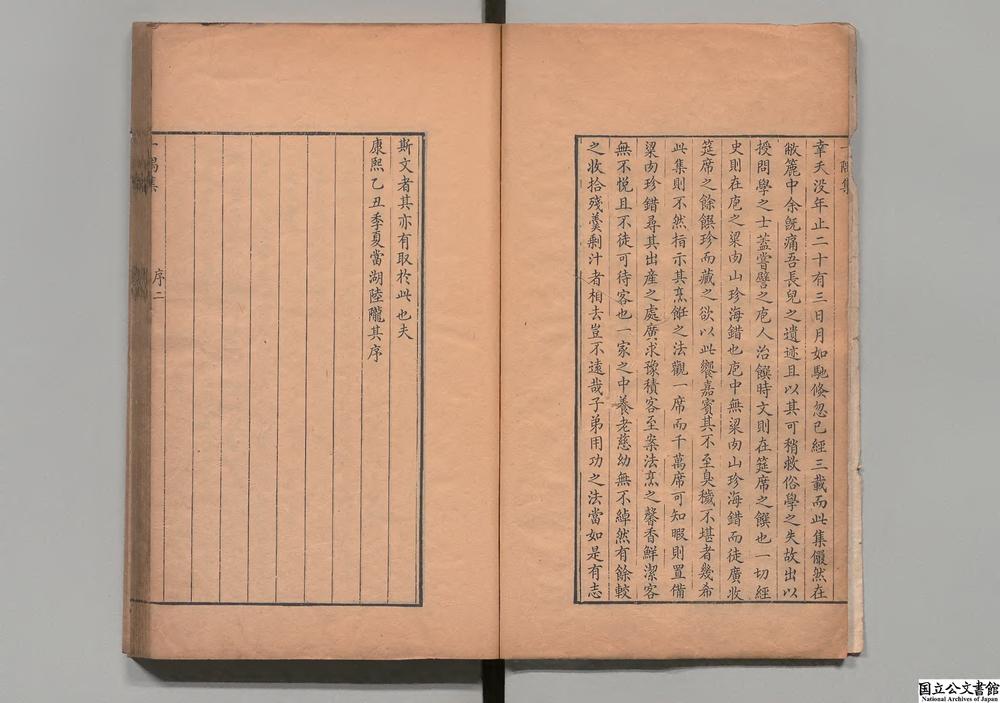 幸夭沒年止二十有三日月如馳倐忽已經三載而此集儼然在
敝簏中余旣痛吾長兒之遺迹且以其可稍救俗學之失故出以
授問學之士蓋嘗譬之庖人治饌時文則在筵席之饌也一切經
史則在庖之粱肉山珍海錯也庖中無粱肉山珍海錯而徒廣收
筵席之餘饌珍而藏之欲以此饗嘉賓其不至臭穢不堪者幾希
此集則不然指示其烹飪之法觀一席而千萬席可知暇則置備
粱肉珍錯尋其出産之處廣求豫積客至案法烹之馨香鮮潔客
無不悦且不徒可待客也一家之中養老慈幼無不綽然有餘較
之收拾殘羹剩汁者相去豈不遠哉子弟用功之法當如是有志
斯文者其亦有取於此也夫
康熙乙丑季夏當湖陸隴其序
一隅集
序二
国立公文書館
National Archives of Japan